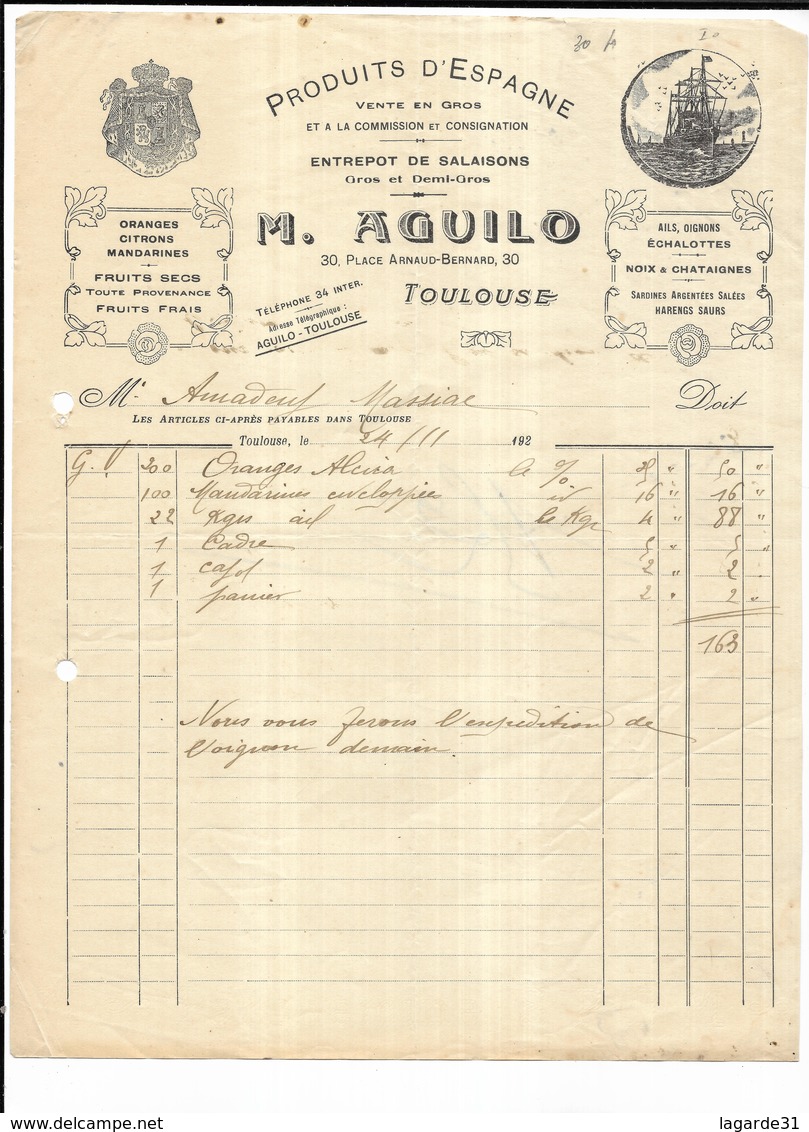 30
PRODUITS D'ESPAGNE
VENTE EN GROS
ET A LA COMMISSION ET CONSIGNATION
ENTREPOT DE SALAISONS
Gros et Demi-Gros
M. AGUILO
30, PLACE ARNAUD-BERNARD, 30
TOULOUSE
TÉLÉPHONE 34 INTER.
Adresse Télégraphique :
AGUILO - TOULOUSE
ORANGES
CITRONS
MANDARINES
FRUITS SECS
TOUTE PROVENANCE
FRUITS FRAIS
AILS, OIGNONS
ÉCHALOTTES
NOIX & CHATAIGNES
SARDINES ARGENTÉES SALÉES
HARENGS SAURS
M. Amadeuf Massiac Doit
LES ARTICLES CI-APRÈS PAYABLES DANS TOULOUSE
Toulouse, le 24/11 192
G.V. 200 Oranges Alcira le % 25 " 50 "
100 Mandarines enveloppées id 16 " 16 "
22 Kgs ail le Kgr 4 " 88 "
1 Cadre 5 " 5 "
1 2 " 2
1 panier 2 " 2 "
163
Nous vous ferons l'expedition de
l'oignon demain.
lagarde31